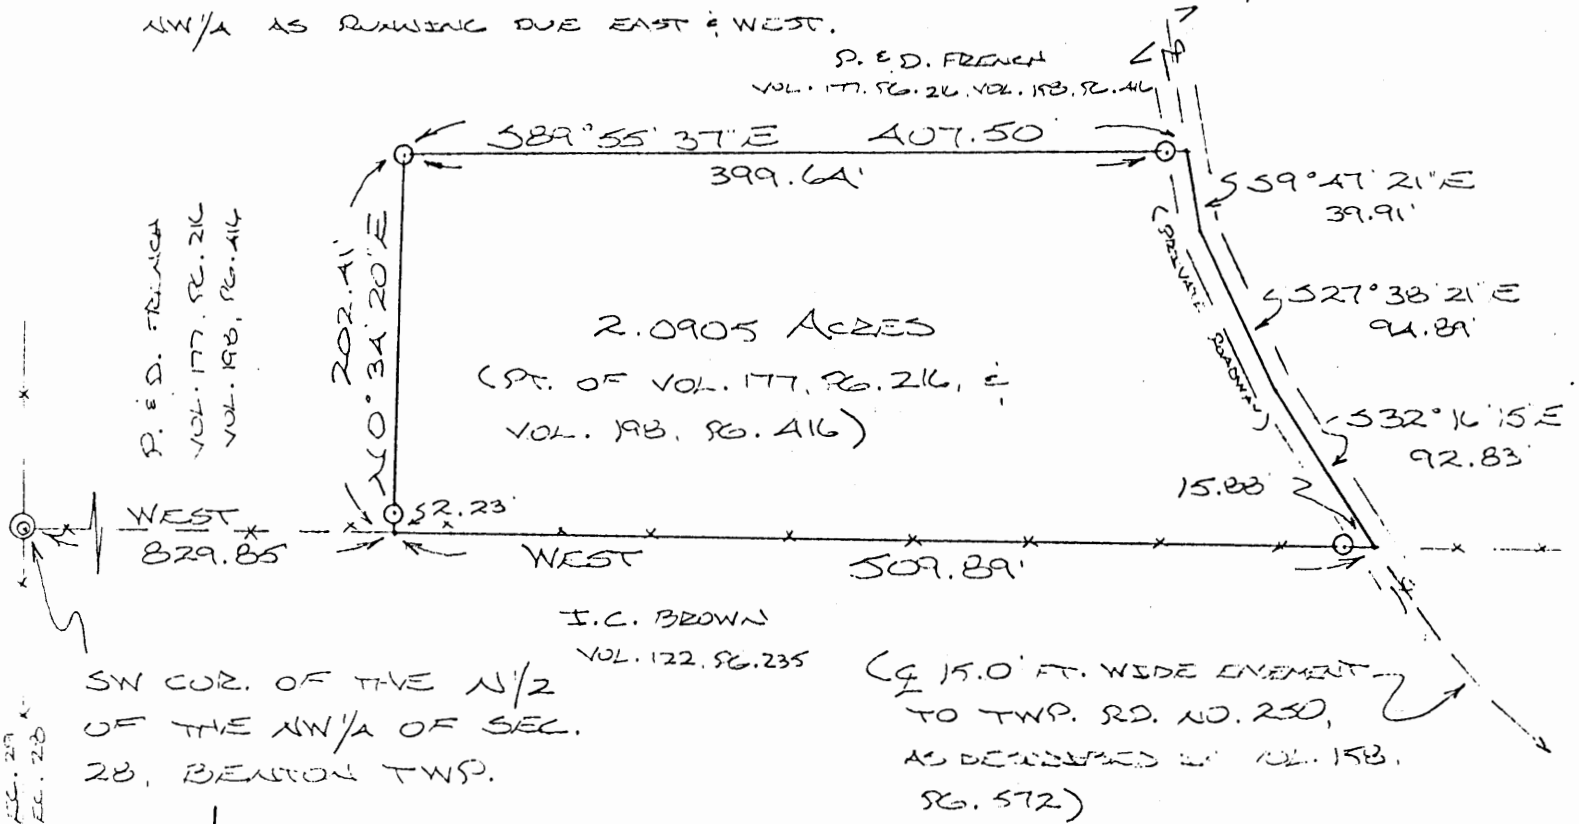 NW1/4 AS RUNNING DUE EAST & WEST.
P. & D. FRENCH
VOL. 177, PG. 216, VOL. 198, PG. 416
S89°55'37"E 407.50'
399.64'
S59°47'21"E
39.91'
(PRIVATE ROADWAY)
S27°38'21"E
94.89'
S32°16'15"E
92.83'
15.88'
P. & D. FRENCH
VOL. 177, PG. 216
VOL. 198, PG. 416
202.41'
N0°34'20"E
2.0905 ACRES
(PT. OF VOL. 177, PG. 216, &
VOL. 198, PG. 416)
2.23'
WEST
829.85
WEST 509.89'
I.C. BROWN
VOL. 122, PG. 235
SW COR. OF THE N1/2
OF THE NW1/4 OF SEC.
28, BENTON TWP.
SEC. 29
SEC. 28
(℄ 15.0' FT. WIDE EASEMENT
TO TWP. RD. NO. 250,
AS DESCRIBED IN VOL. 158,
PG. 572)